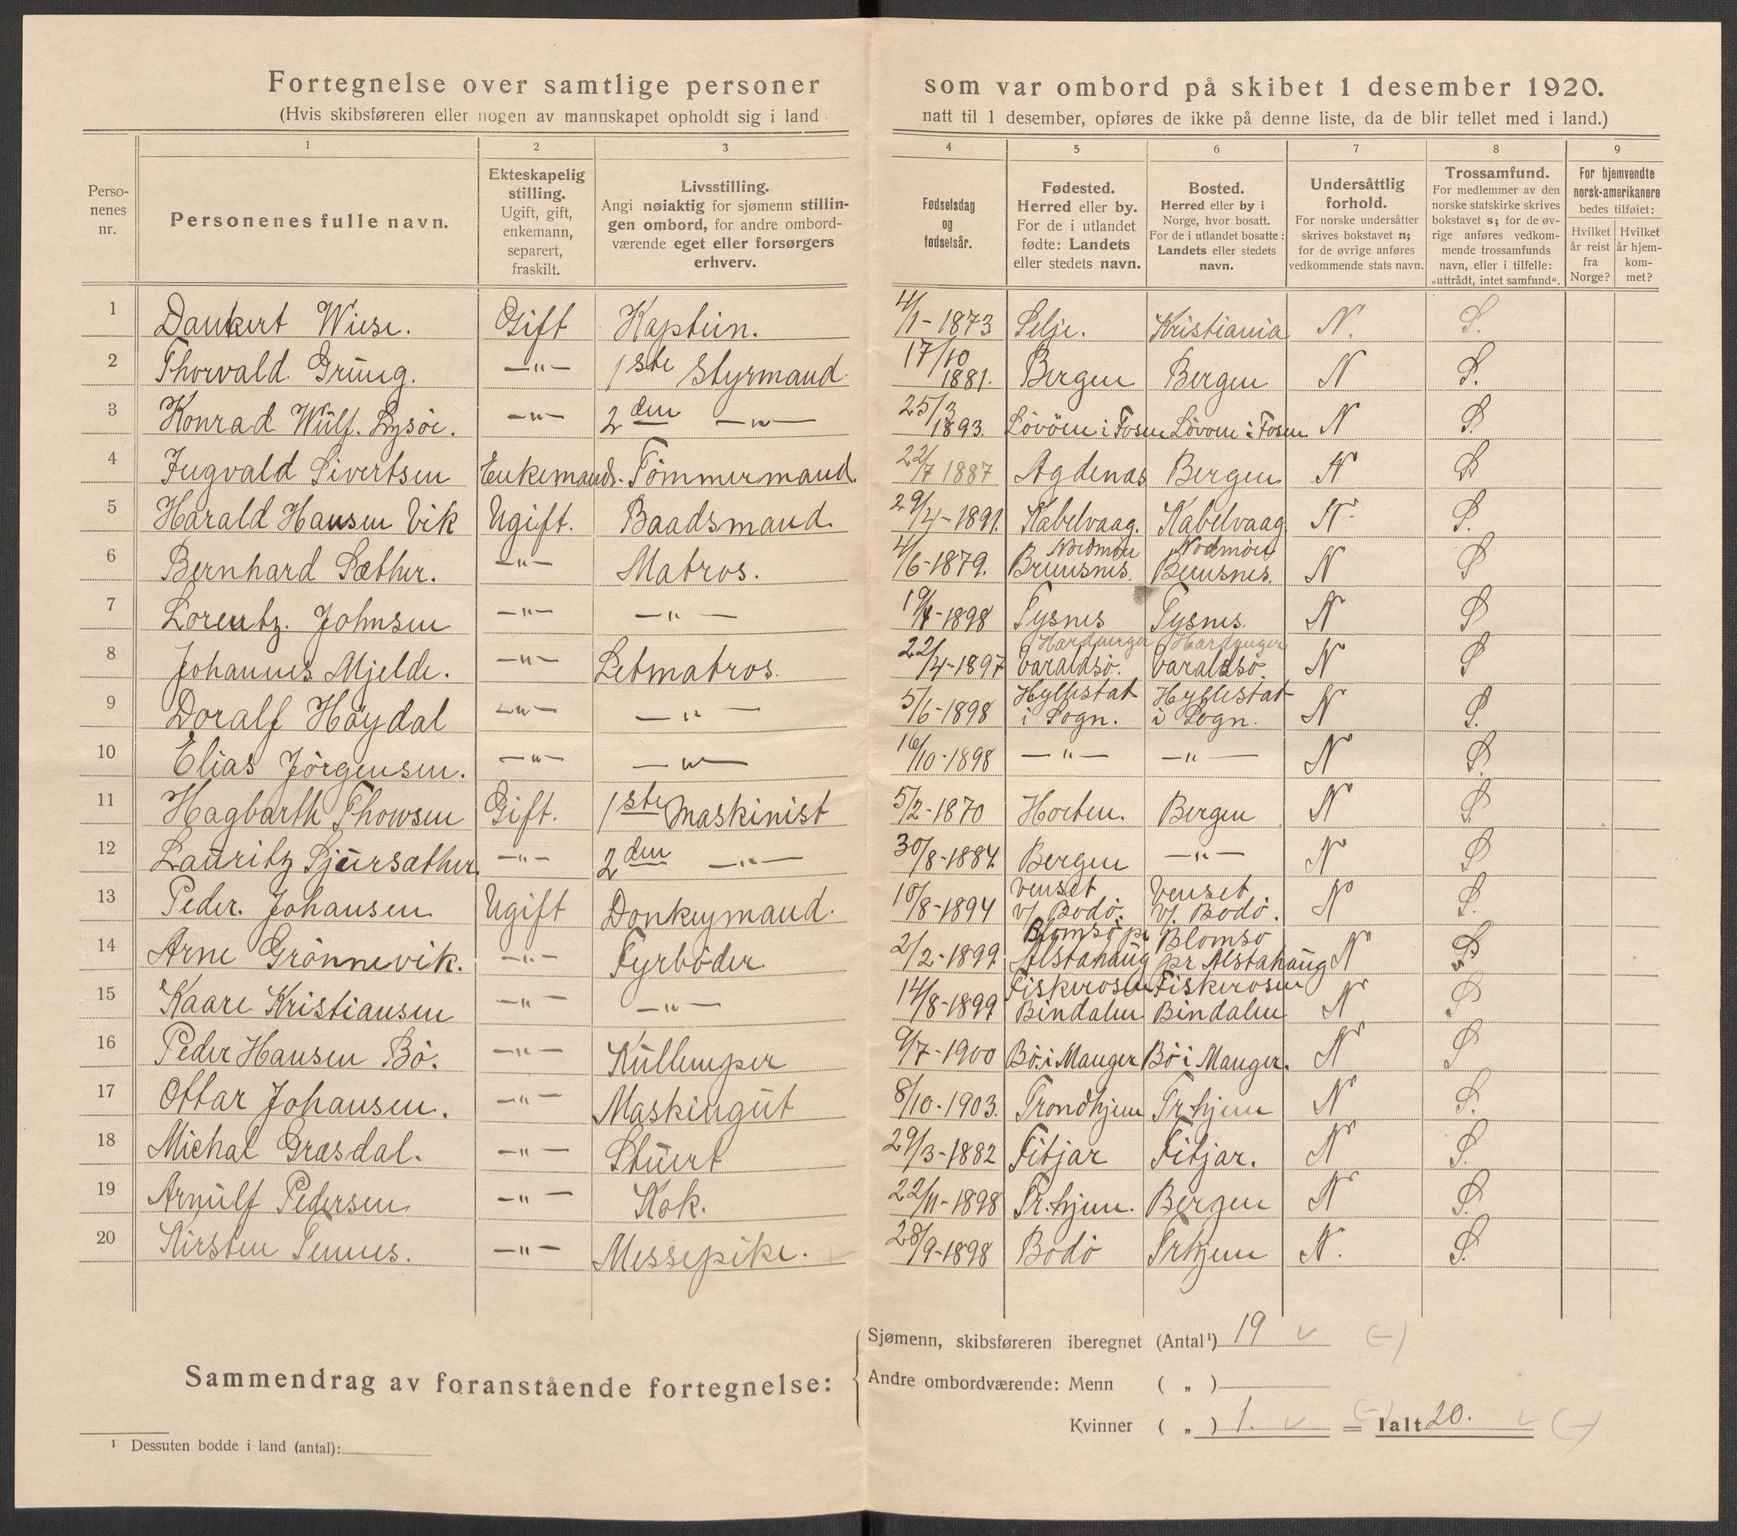 Fortegnelse over samtlige personer som var ombord på skibet 1 desember 1920.
(Hvis skibsføreren eller nogen av mannskapet opholdt sig i land natt til 1 desember, opføres de ikke på denne liste, da de blir tellet med i land.)
1 2 3 4 5 6 7 8 9
Perso-nenes nr.
Personenes fulle navn.
Ekteskapelig stilling.
Ugift, gift, enkemann, separert, fraskilt.
Livsstilling.
Angi nøiaktig for sjømenn stillin-gen ombord, for andre ombord-værende eget eller forsørgers erhverv.
Fødselsdag og fødselsår.
Fødested.
Herred eller by.
For de i utlandet fødte: Landets eller stedets navn.
Bosted.
Herred eller by i Norge, hvor bosatt.
For de i utlandet bosatte: Landets eller stedets navn.
Undersåttlig forhold.
For norske undersåtter skrives bokstavet n; for de øvrige anføres vedkommende stats navn.
Trossamfund.
For medlemmer av den norske statskirke skrives bokstavet s; for de øv-rige anføres vedkom-mende trossamfunds navn, eller i tilfelle: „uttrådt, intet samfund“.
For hjemvendte norsk-amerikanere bedes tilføiet:
Hvilket år reist fra Norge?
Hvilket år hjem-kom-met?
1 Dankert Wiese. Gift Kaptein. 4/1-1873 Selje. Kristiania N. S.
2 Thorvald Grung. —"— 1ste Styrmand 17/10 1881. Bergen Bergen N S.
3 Konrad Wulf. Lysøe. —"— 2den —"— 25/3 1893. Løvöen i Fosen Løvoen i Fosen N S.
4 Ingvald Sivertsen Enkemands. Tømmermand. 22/7 1887 Agdenas Bergen N S
5 Harald Hansen Vik Ugift. Baadsmand. 29/4-1891. Kabelvaag. Kabelvaag N. S.
6 Bernhard Sæther. —"— Matros. 4/6-1879. Nordmøre Bremsnes. Nodmøre Bemsnes. N S
7 Lorentz. Johnsen —"— —"— 19/4-1898 Tysnes Tysnes. N S
8 Johannes Mjelde. —"— Letmatros. 22/4-1897 Hardanger Varaldsö Hardanger Varaldsö. N S
9 Doralf Høydal —"— —"— 5/6-1898 Hyllestat i Sogn. Hyllestat i Sogn. N S.
10 Elias Jörgensen. —"— —"— 16/10-1898 —"— —"— N S.
11 Hagbarth Thowsen Gift. 1ste Maskinist 5/2-1870 Horten. Bergen N S
12 Lauritz Sjursæther. —"— 2den —"— 30/8-1884. Bergen —"— N S
13 Peder. Johansen Ugift Donkeymand. 10/8-1894 Venset v/. Bodö. Venset v/. Bodö. N S.
14 Arne Grönnevik. —"— Fyrböder 2/2-1899. Blomsö pr Alstahaug Blomso pr Alstahaug N S
15 Kaare Kristiansen —"— —"— 14/8-1899 Fiskerosen Bindalen Fiskerosen Bindalen N S
16 Peder Hansen Bö. —"— Kullemper 9/7-1900 Bö i Manger Bö i Manger. N S
17 Ottar Johansen. —"— Maskingut 8/10-1903. Trondhjem Tr.hjem N S.
18 Michal Græsdal. —"— Stuert 29/3-1882 Fitjar Fitjar. N S.
19 Arnulf Pedersen —"— Kok. 22/11-1898 Tr.hjem. Bergen N S.
20 Kirsten —"— Messepike. 28/9-1898 Bodö Trhjem N. S.
Sammendrag av foranstående fortegnelse:
Sjømenn, skibsføreren iberegnet (Antal¹) 19
Andre ombordværende: Menn ( „ )
Kvinner ( „ ) 1. = Ialt 20.
¹ Dessuten bodde i land (antal):